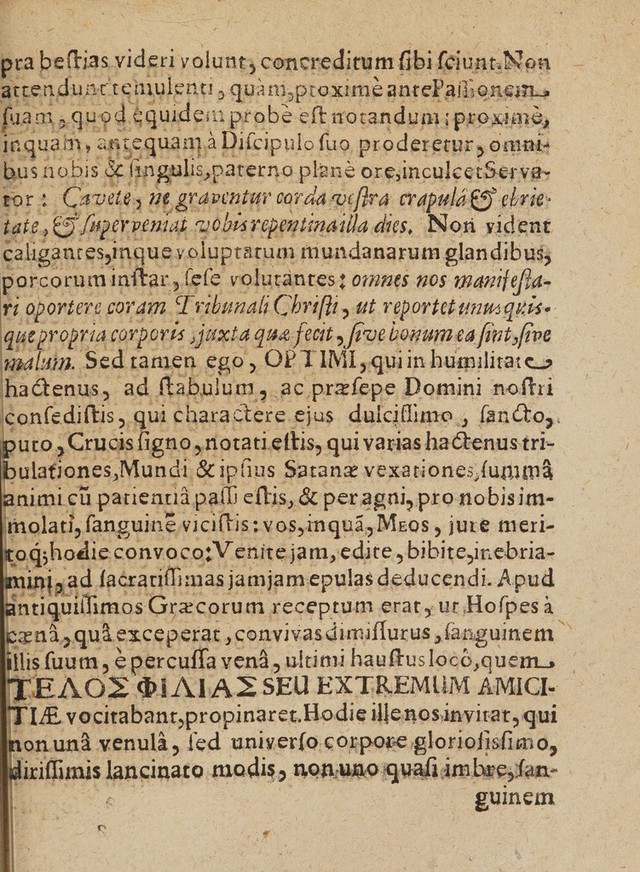 pra beſtias videri volunt, concreditum ſibi ſciunt. Non
attendunt temulenti, quàm, proximè ante Paſſionem
ſuam, quod equidem probè eſt notandum; proximè,
inquam, antequam à Diſcipulo ſuo proderetur, omni-
bus nobis & ſingulis, paterno planè ore, inculcet Serva-
tor: Cavete, ne graventur corda veſtra crapulâ & ebrie-
tate, & ſuperveniat vobis repentina illa dies. Non vident
caligantes, inque voluptatum mundanarum glandibus,
porcorum inſtar, ſeſe volutantes: omnes nos manifeſta-
ri oportere coram Tribunali Chriſti, ut reportet unusquis-
que propria corporis, juxta quæ fecit, ſive bonum ea ſint, ſive
malum. Sed tamen ego, OPTIMI, qui in humilitate
hactenus, ad ſtabulum, ac præſepe Domini noſtri
conſediſtis, qui charactere ejus dulciſſimo, ſancto,
puto, Crucis ſigno, notati eſtis, qui varias hactenus tri-
bulationes, Mundi & ipſius Satanæ vexationes, ſummâ
animi cũ patientiâ paſſi eſtis, & per agni, pro nobis im-
molati, ſanguinẽ viciſtis: vos, inquã, Meos, jure meri-
toq́; hodie convoco: Venite jam, edite, bibite, inebria-
mini, ad ſacratiſſimas jamjam epulas deducendi. Apud
antiquiſſimos Græcorum receptum erat, ut Hoſpes à
cænâ, quâ exceperat, convivas dimiſſurus, ſanguinem
illis ſuum, è percuſſa venâ, ultimi hauſtus locô, quem
ΤΕΛΟΣ ΦΙΛΙΑΣ SEU EXTREMUM AMICI-
TIÆ vocitabant, propinaret. Hodie ille nos invitat, qui
non unâ venulâ, ſed univerſo corpore glorioſisſimo,
diriſſimis lancinato modis, non uno quaſi imbre, ſan-
guinem